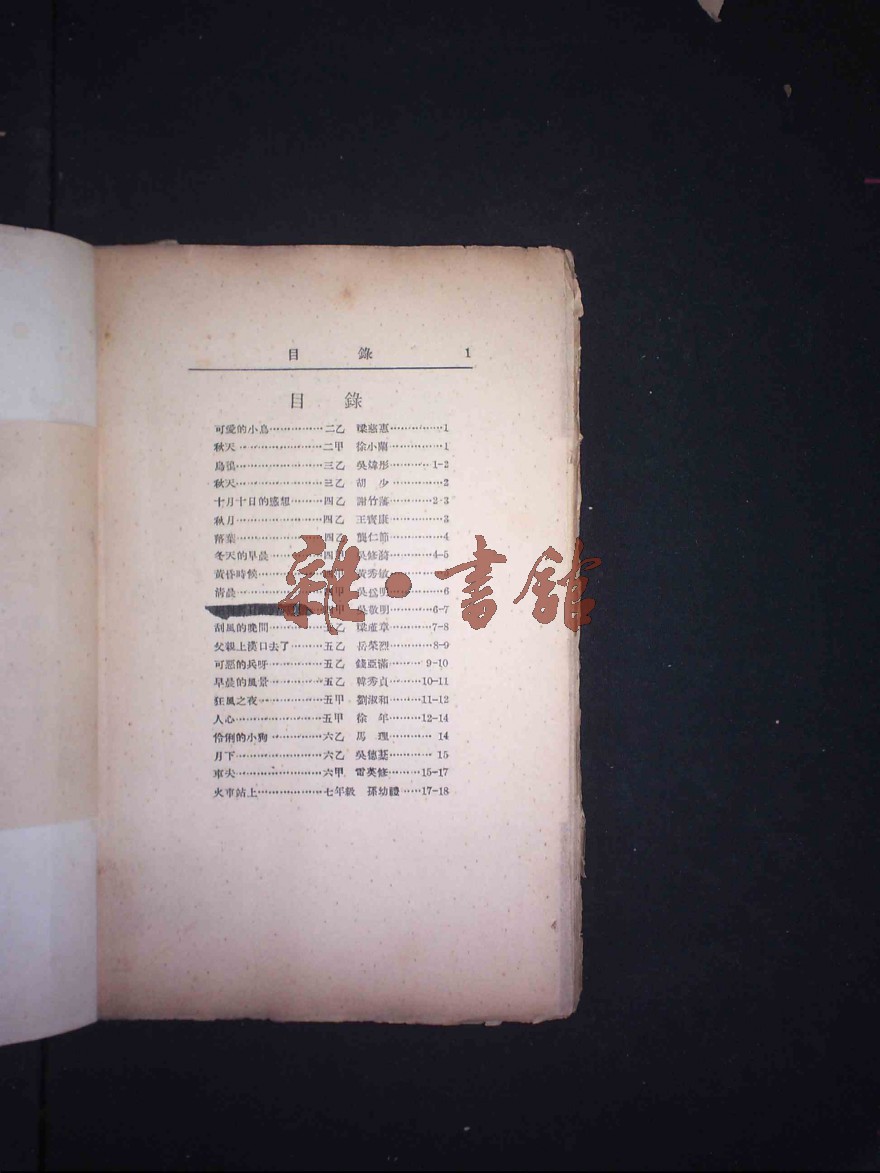 目錄 1
目錄
可愛的小鳥……………二乙 梁慈惠……………1
秋天……………………二甲 徐小蘭……………1
烏鴉……………………三乙 吳煒彤…………1-2
秋天……………………三乙 胡 少……………2
十月十日的感想………四乙 謝竹藩…………2-3
秋月……………………四乙 王寶康……………3
落葉……………………四乙 龔仁節……………4
冬天的早晨……………四甲 吳修 …………4-5
黃昏時候………………四甲 黃秀敏
清晨…………………… 甲 吳為明……………6
甲 吳敬明…………6-7
刮風的晚間……………五乙 梁 章…………7-8
父親上漢口去了………五乙 岳榮烈…………8-9
可惡的兵呀……………五乙 錢亞滿………9-10
早晨的風景……………五乙 韓秀貞………10-11
狂風之夜………………五甲 劉淑和………11-12
人心……………………五甲 徐 年………12-14
伶俐的小狗……………六乙 馬 理…………14
月下……………………六乙 吳德 …………15
車夫……………………六甲 雷英修………15-17
火車站上………………七年級 孫幼禮……17-18
雜·書館